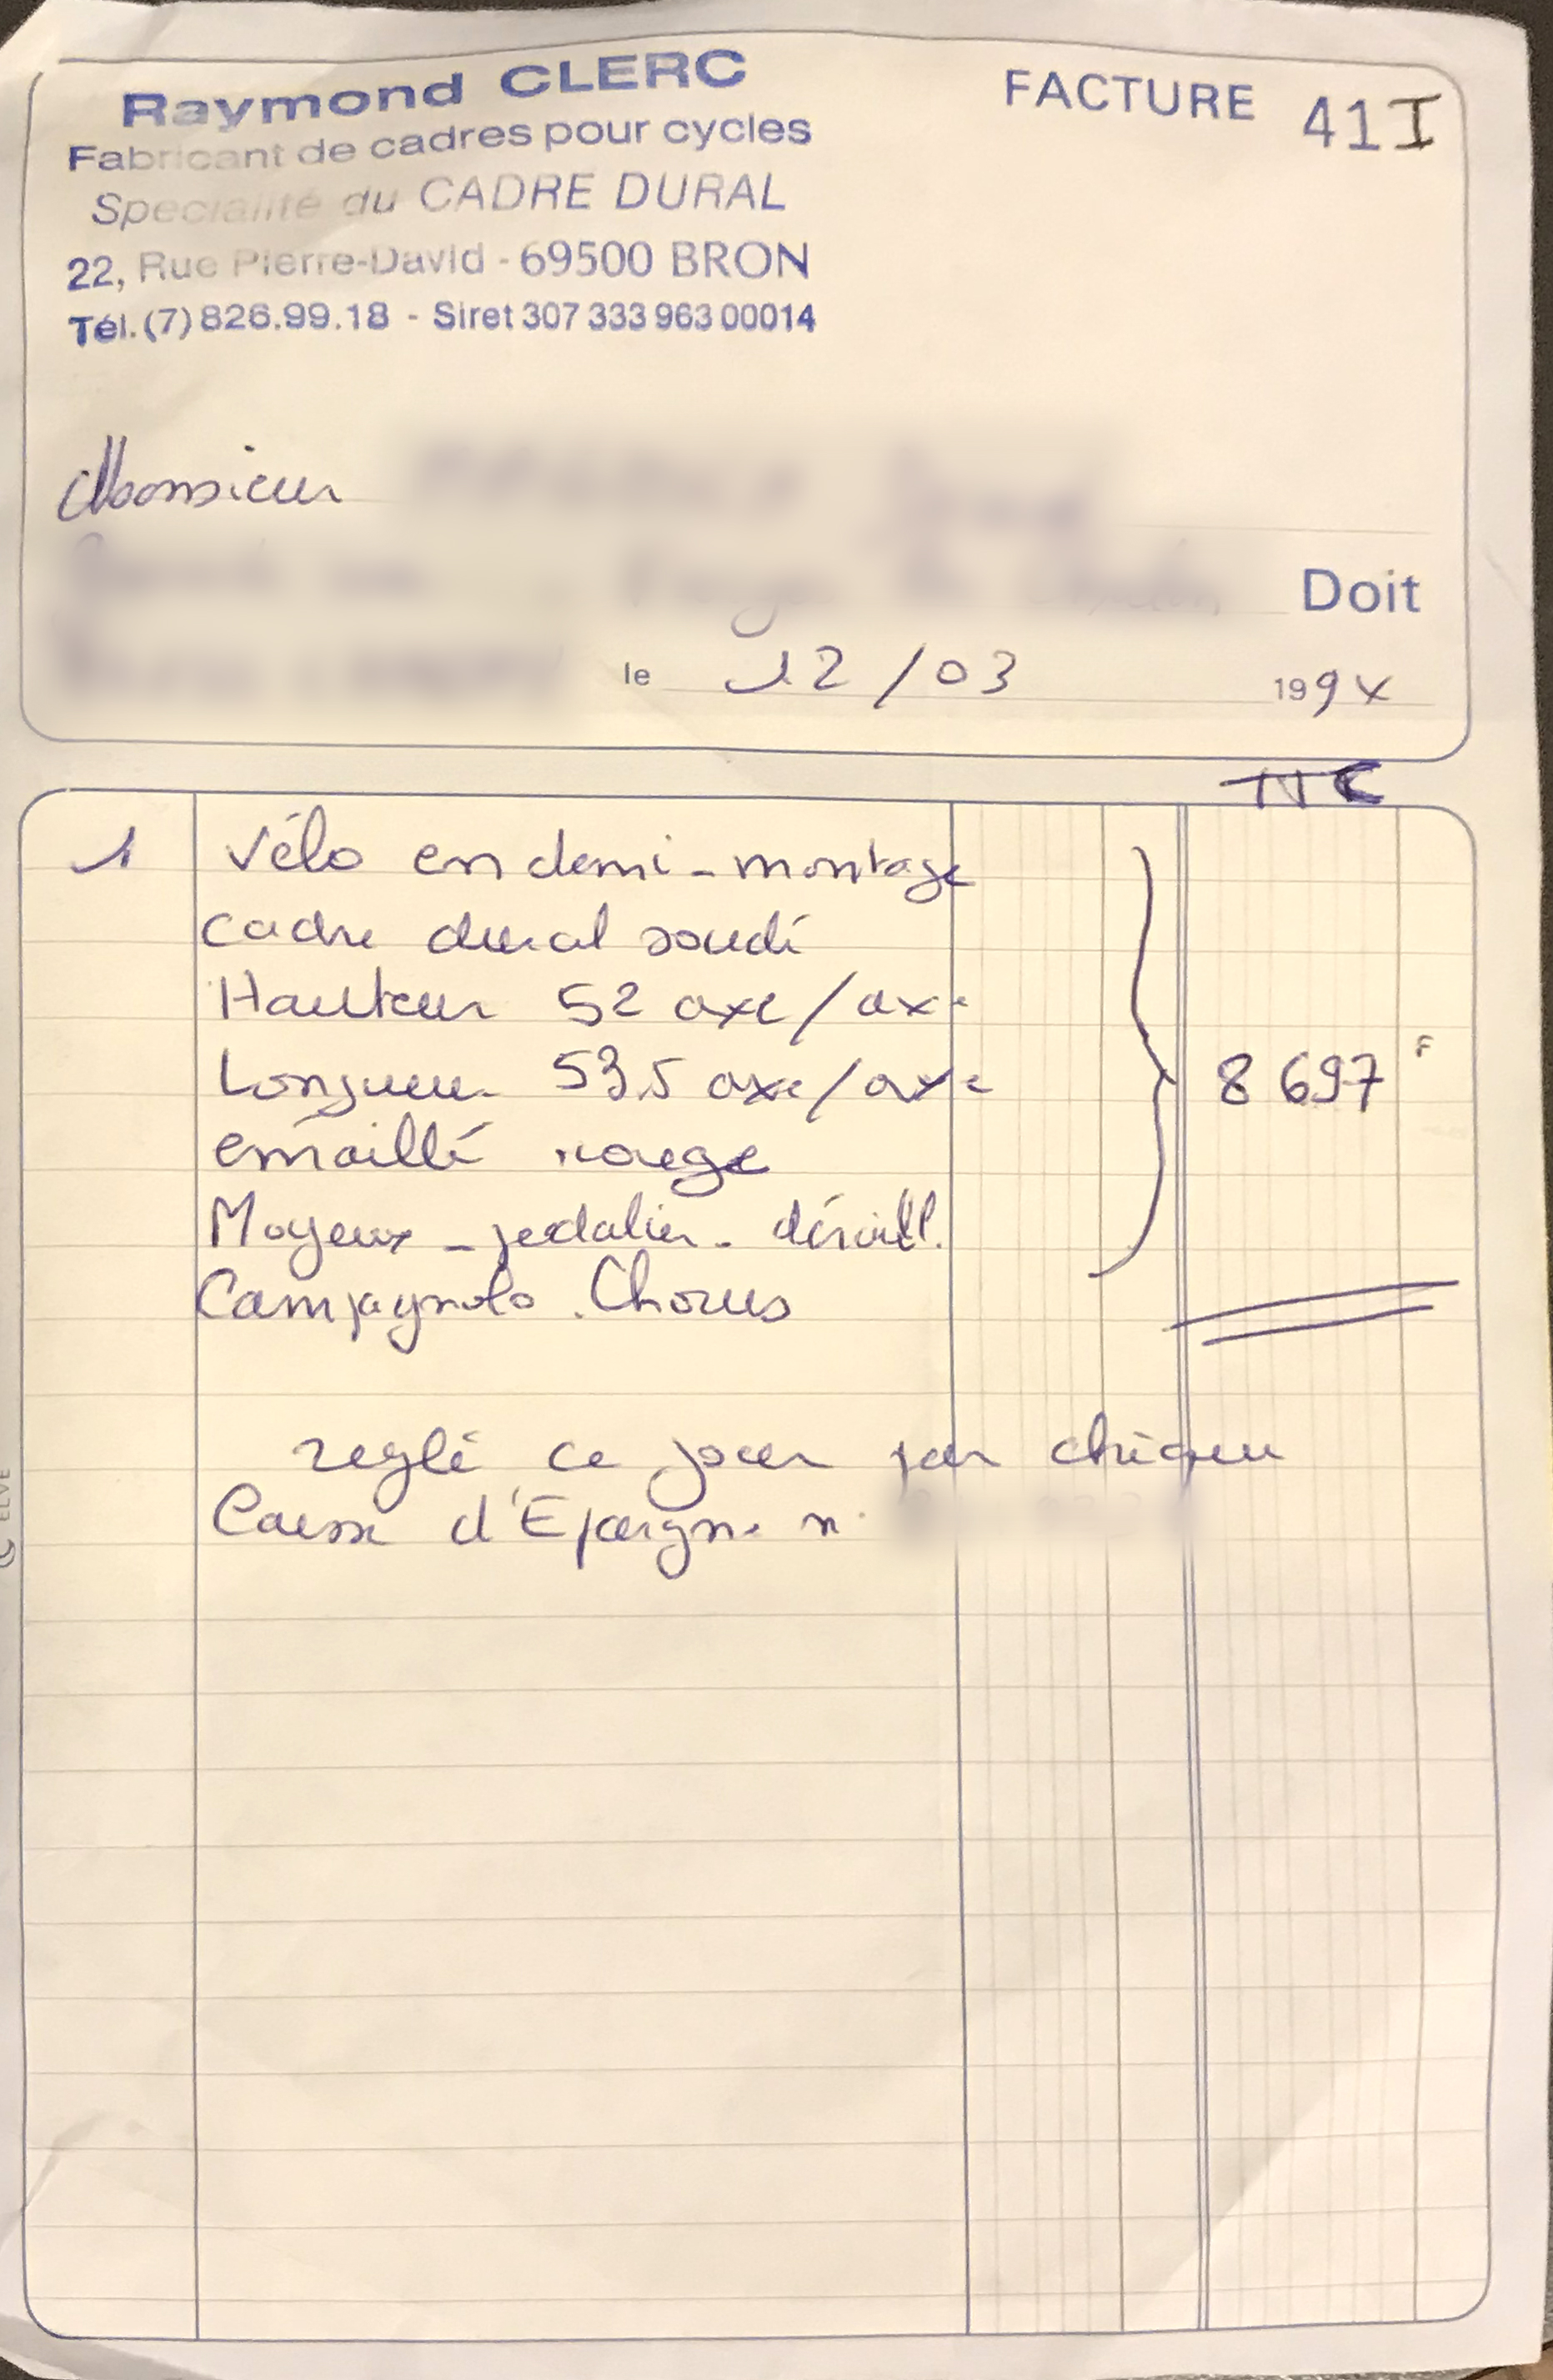 Raymond CLERC
FACTURE 41I
Fabricant de cadres pour cycles
Spécialité du CADRE DURAL
22, Rue Pierre-David - 69500 BRON
Tél. (7) 826.99.18 - Siret 307 333 963 00014
Monsieur
Doit
le 12/03 199
1 Vélo en demi-montage
cadre dural soudé
Hauteur 52 axe/axe
Longueur 53.5 axe/axe
8 697 F
emaillé rouge
Moyeux - pedalier - déraill.
Campagnolo. Chorus
reglé ce jour par chèque
Caisse d'Epargne n.
ELVE